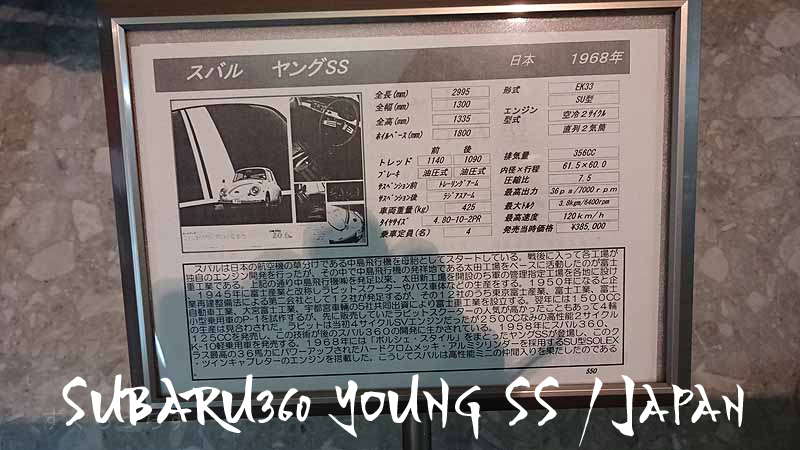 スバル ヤングSS 日本 1968年
全長(mm) 2995
全幅(mm) 1300
全高(mm) 1335
ホイルベース(mm) 1800
前 後
トレッド 1140 1090
ブレーキ 油圧式 油圧式
サスペンション前 トレーリングアーム
サスペンション後 ラジアスアーム
車両重量(kg) 425
タイヤサイズ 4.80-10-2PR
乗車定員(名) 4
形式 EK33
SU型
エンジン型式 空冷2サイクル
直列2気筒
排気量 356CC
内径×行程 61.5×60.0
圧縮比 7.5
最高出力 36ps/7000rpm
最大トルク 3.8kgm/6400rpm
最高速度 120km/h
発売当時価格 ¥385,000
スバルは日本の航空機の草分けである中島飛行機を母胎としてスタートしている。戦後に入って各工場が
独自のエンジン開発を行ったが、その中で中島飛行機の発祥地である太田工場をベースに活動したのが富士
重工業である。
1945年に富士産業と改称しラビットスクーターやバス車体などの生産をする。1950年になると企
業再建整備法による第二会社として12社が発足するが、そのうち東京富士産業、富士工業、富士
自動車工業、大宮富士工業、宇都宮車輛の5社共同出資により富士重工業を設立する。翌年には1500CC
小型乗用車のP-1を試作するが、先に販売していたラビットスクーターの人気が高かったこともあって4輪
の生産は見合わされた。ラビットは当初4サイクルSVエンジンだったが250CCなみの高性能2サイクル
125CCを発売し、この技術が後のスバル360の開発に生かされている。1958年にスバル360、
K-10軽乗用車を発売する。1968年には「ポルシェ・スタイル」をまとったヤングSSが登場し、このク
ラス最高の36馬力にパワーアップされたハードクロムメッキ・アルミシリンダーを採用するSU型SOLEX
・ツインキャブレターのエンジンを搭載した。こうしてスバルは高性能ミニの仲間入りを果たしたのである
550
SUBARU360 YOUNG SS / JAPAN